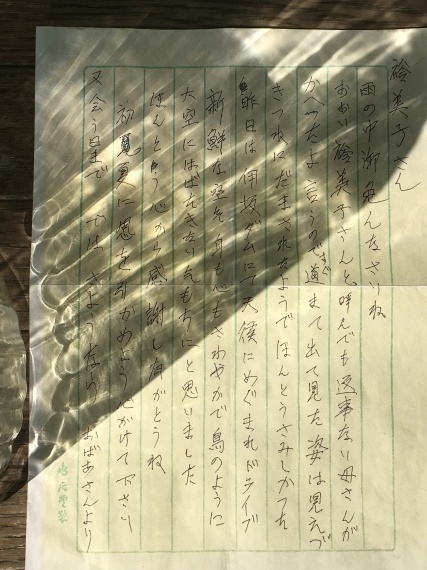 裕美子さん
雨の中御免なさいね
おおい裕美子さんと呼んでも返事ない母さんが
かへつたよと言うのですぐ道まで出て見た姿は見えづ
きつねにだまされたようでほんとうさみしかつた
昨日は伊坂ダムにて天候にめぐまれドライブ
新鮮な空気身も心もさわやかで鳥のように
大空にはばたきたい気もちにと思いました
ほんとう心から感謝し有がとうね
初夏に風を引かぬよう心がけて下さい
又会う日まで さようなら おばあさんより